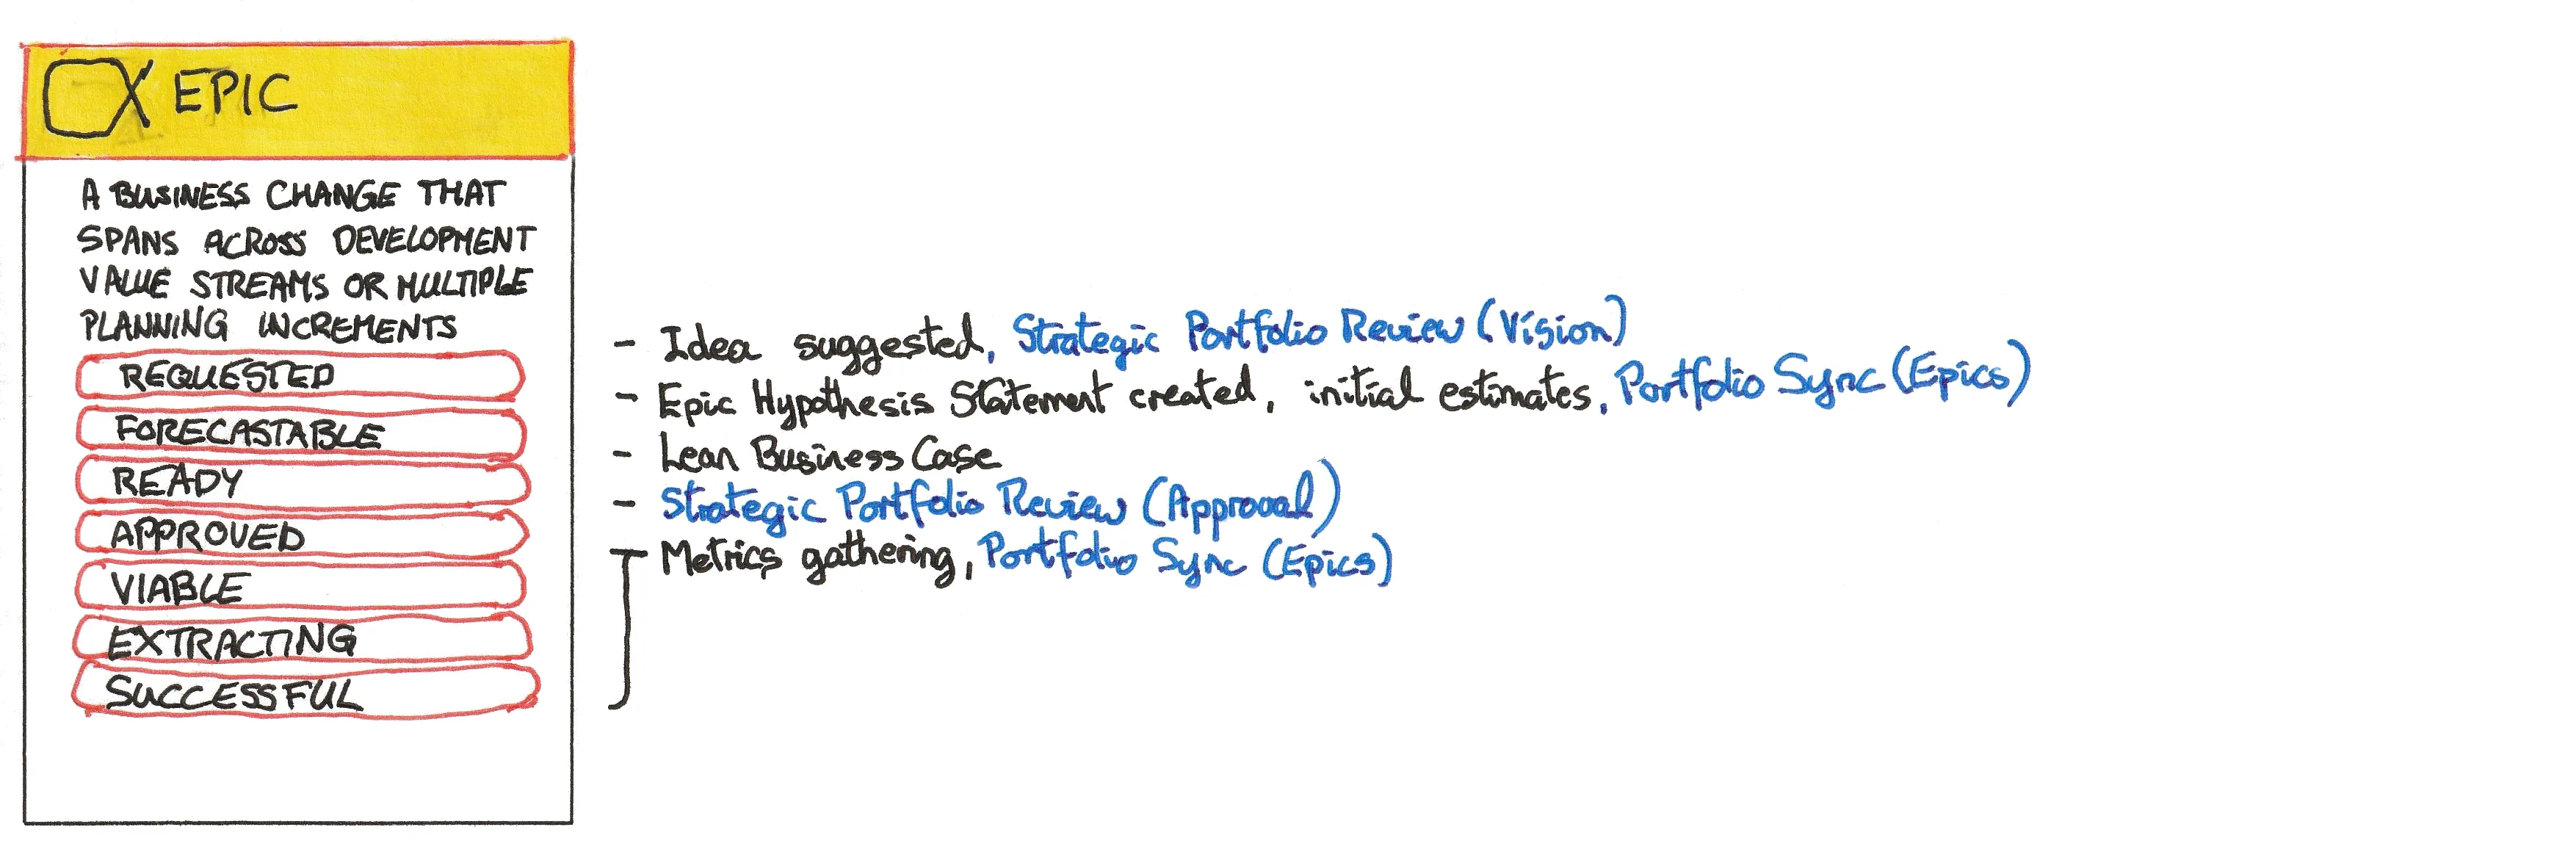 EPIC
A BUSINESS CHANGE THAT
SPANS ACROSS DEVELOPMENT
VALUE STREAMS OR MULTIPLE
PLANNING INCREMENTS
REQUESTED
FORECASTABLE
READY
APPROVED
VIABLE
EXTRACTING
SUCCESSFUL
- Idea suggested, Strategic Portfolio Review (Vision)
- Epic Hypothesis Statement created, initial estimates, Portfolio Sync (Epics)
- Lean Business Case
- Strategic Portfolio Review (Approval)
Metrics gathering, Portfolio Sync (Epics)